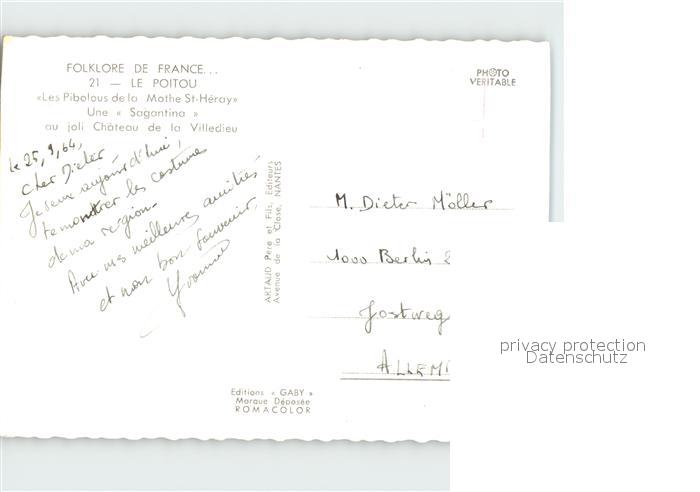 FOLKLORE DE FRANCE...
21 — LE POITOU
«Les Pibolous de la Mothe St-Héray»
Une « Sagantina »
au joli Château de la Villedieu
PHOTO
VERITABLE
le 25, 9, 64,
Cher Dieter,
Je veux aujourd'hui,
te montrer les costumes
de ma region.
Avec mes meilleures amitiés
et mon bon souvenir,
Yvonne
ARTAUD Père et Fils, Editeurs
Avenue de la Close, NANTES
M. Dieter Möller
1000 Berlin
Jostweg
ALLEM
Editions « GABY »
Marque Déposée
ROMACOLOR
privacy protection
Datenschutz